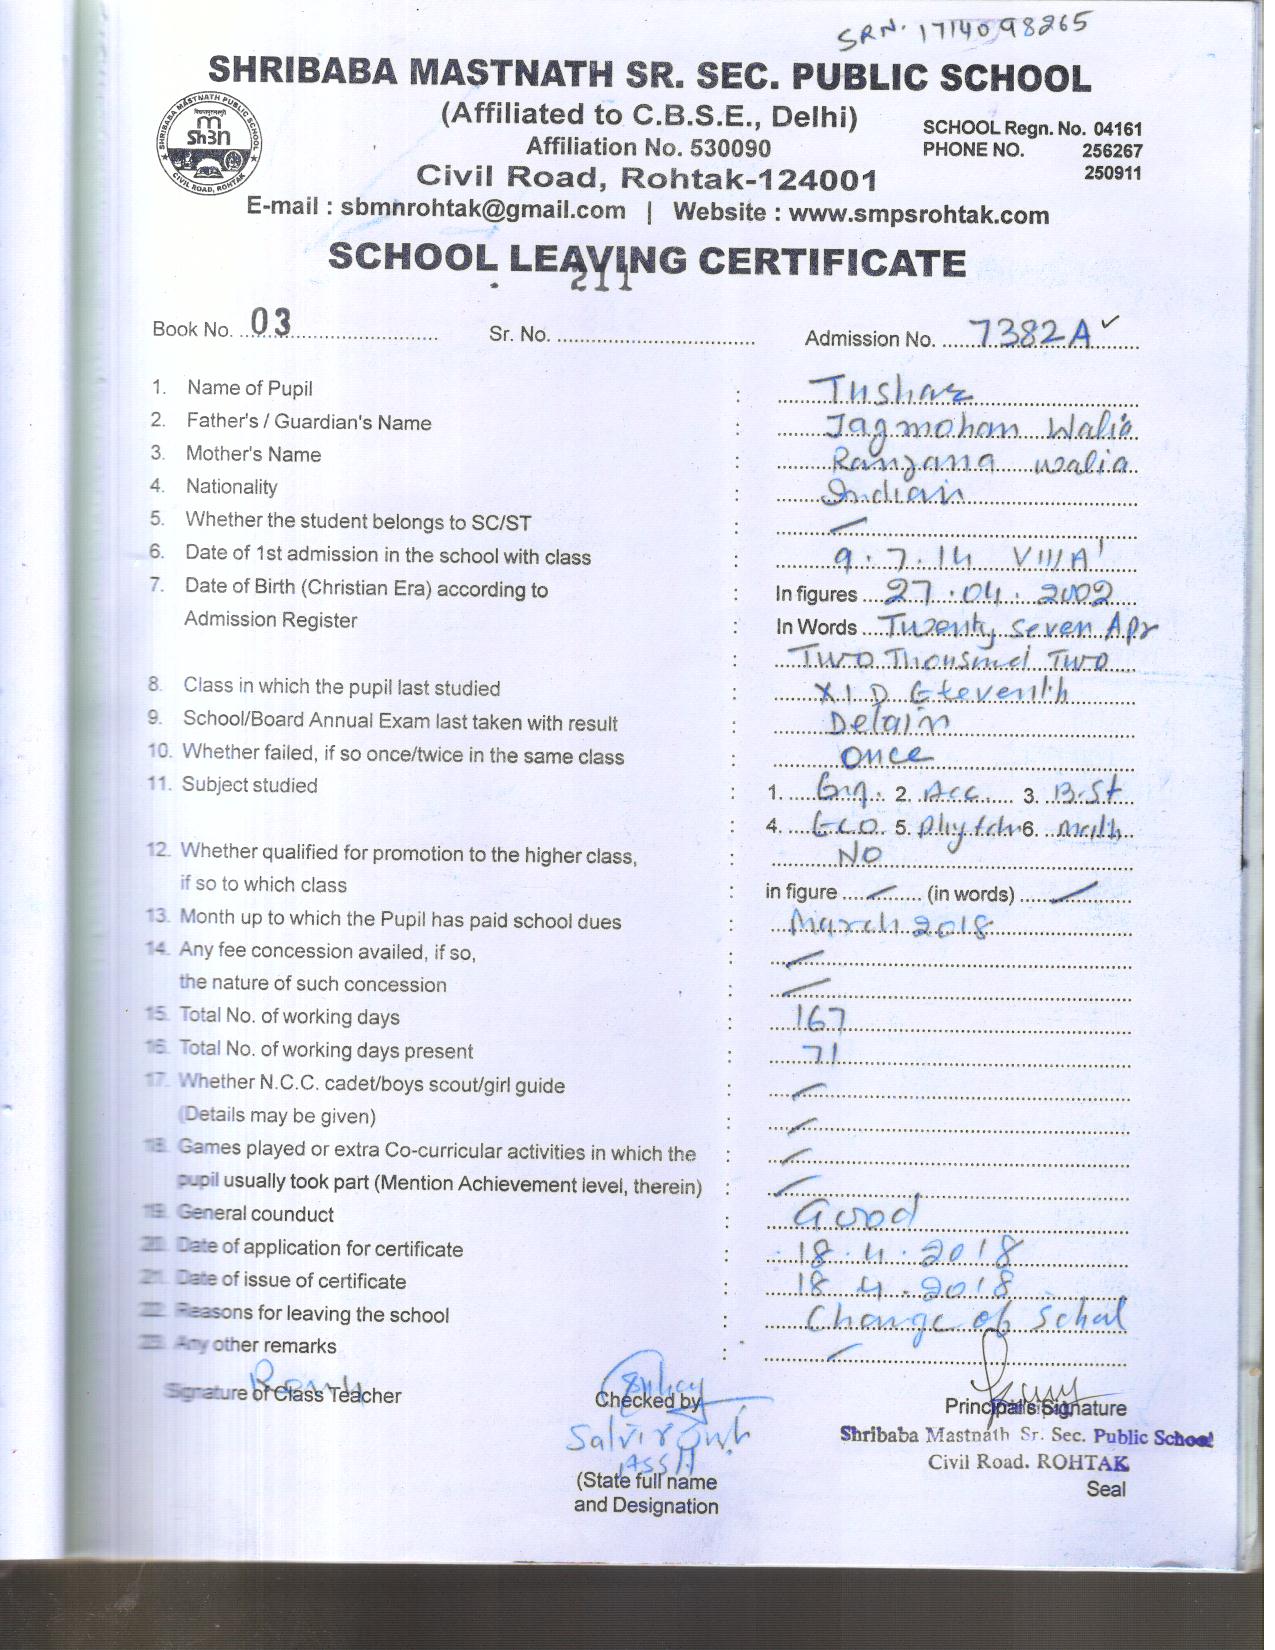 SRN. 1714098265
SHRIBABA MASTNATH SR. SEC. PUBLIC SCHOOL
(Affiliated to C.B.S.E., Delhi)
SHRIBABA MASTNATH PUBLIC SCHOOL
Sh3n
CIVIL ROAD, ROHTAK
SCHOOL Regn. No. 04161
Affiliation No. 530090
PHONE NO. 256267
250911
Civil Road, Rohtak-124001
E-mail : sbmnrohtak@gmail.com | Website : www.smpsrohtak.com
SCHOOL LEAVING CERTIFICATE
211
Book No. 03 Sr. No. Admission No. 7382A ✓
1. Name of Pupil : Tushar
2. Father's / Guardian's Name : Jagmohan Walia
3. Mother's Name : Ranjana walia
4. Nationality : Indian
5. Whether the student belongs to SC/ST :
6. Date of 1st admission in the school with class : 9.7.14 VIII A
7. Date of Birth (Christian Era) according to : In figures 27.04.2002
Admission Register : In Words Twenty Seven Apr
: Two Thousand Two
8. Class in which the pupil last studied : XI D Eleventh
9. School/Board Annual Exam last taken with result : Detain
10. Whether failed, if so once/twice in the same class : Once
11. Subject studied : 1. Eng. 2. Acc. 3. B.St
: 4. Eco. 5. 6. Math
12. Whether qualified for promotion to the higher class, : NO
if so to which class : in figure (in words)
13. Month up to which the Pupil has paid school dues : March 2018
14. Any fee concession availed, if so, :
the nature of such concession :
15. Total No. of working days : 167
16. Total No. of working days present : 71
17. Whether N.C.C. cadet/boys scout/girl guide :
(Details may be given) :
18. Games played or extra Co-curricular activities in which the :
pupil usually took part (Mention Achievement level, therein) :
19. General counduct : Good
20. Date of application for certificate : 18.4.2018
21. Date of issue of certificate : 18.4.2018
22. Reasons for leaving the school : Change of School
23. Any other remarks :
Signature of Class Teacher Checked by Principal's Signature
Shribaba Mastnath Sr. Sec. Public School
Civil Road. ROHTAK
(State full name Seal
and Designation